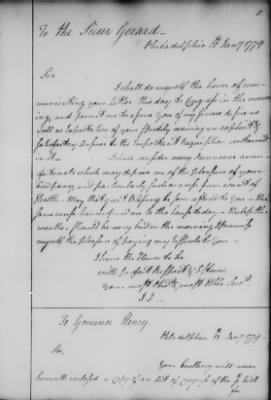 To the Sieur Gerard.
Philadelphia 12 Jany 1779
Sir
I shall do myself the honor of com-
municating your Letter this day to Congress in the morn-
ing, and permit me to assure you of my sincere desire as
well as expectation of your speedily receiving an explicit &
satisfactory answer to the important Requisition contained
in it. I shall consider every
which may deprive me of the pleasure of your
Company, and particularly such as result from want of
Health. May that great Blessing be soon restored to you - the
same cause has confined me to the house to day - Unless the
weather should be very bad in the morning I promise
myself the pleasure of paying my respects to you -
I have the Honor to be
with perfect Respect & Esteem
Your most Obedt & most Hble Servt
J J
To Governor Henry.
Philadelphia 12 Jany 1779
Sir,
Your Excellency will receive
herewith enclosed a Copy of an Act of Congress of the
for